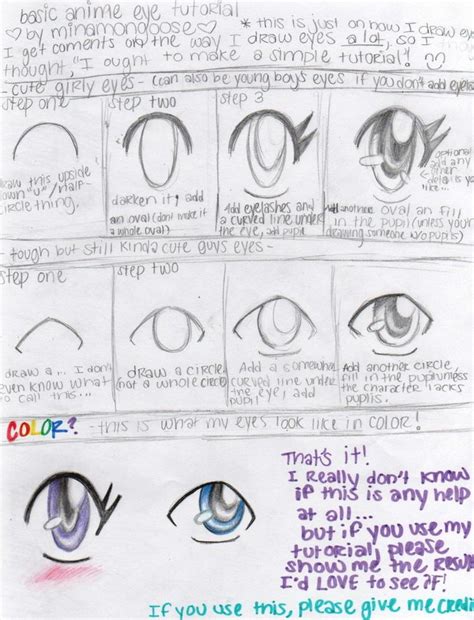 basic anime eye tutorial
♡ by minamongoose ♡
* this is just on how I draw eyes
I get coments on the way I draw eyes a lot, so I
thought, "I ought to make a simple tutorial!"
- cute girly eyes - (can also be young boy's eyes if you don't add eyelashes
step one
step two
step 3
draw this upside
down "u"/half-
circle thing.
darken it, add
an oval (don't make it
a whole oval)
Add eyelashes and
a curved line under
the eye, add pupil
optional:
add any
other
details you
like...
Add another oval an fill
in the pupil (unless your
drawing someone w/o pupils)
- tough but still kinda cute guys eyes -
step one
step two
draw a... I don't
even know what
to call this...
draw a circle
(not a whole circle)
Add a somewhat
curved line under
the eye, add
pupil
Add another circle,
fill in the pupil unless
the character lacks
pupils.
COLOR? - this is what my eyes look like in COLOR!
That's it!
I Really don't know
if this is any help
at all...
but if you use my
tutorial, please
show me the Result
I'd LOVE to see it!
If you use this, please give me credit